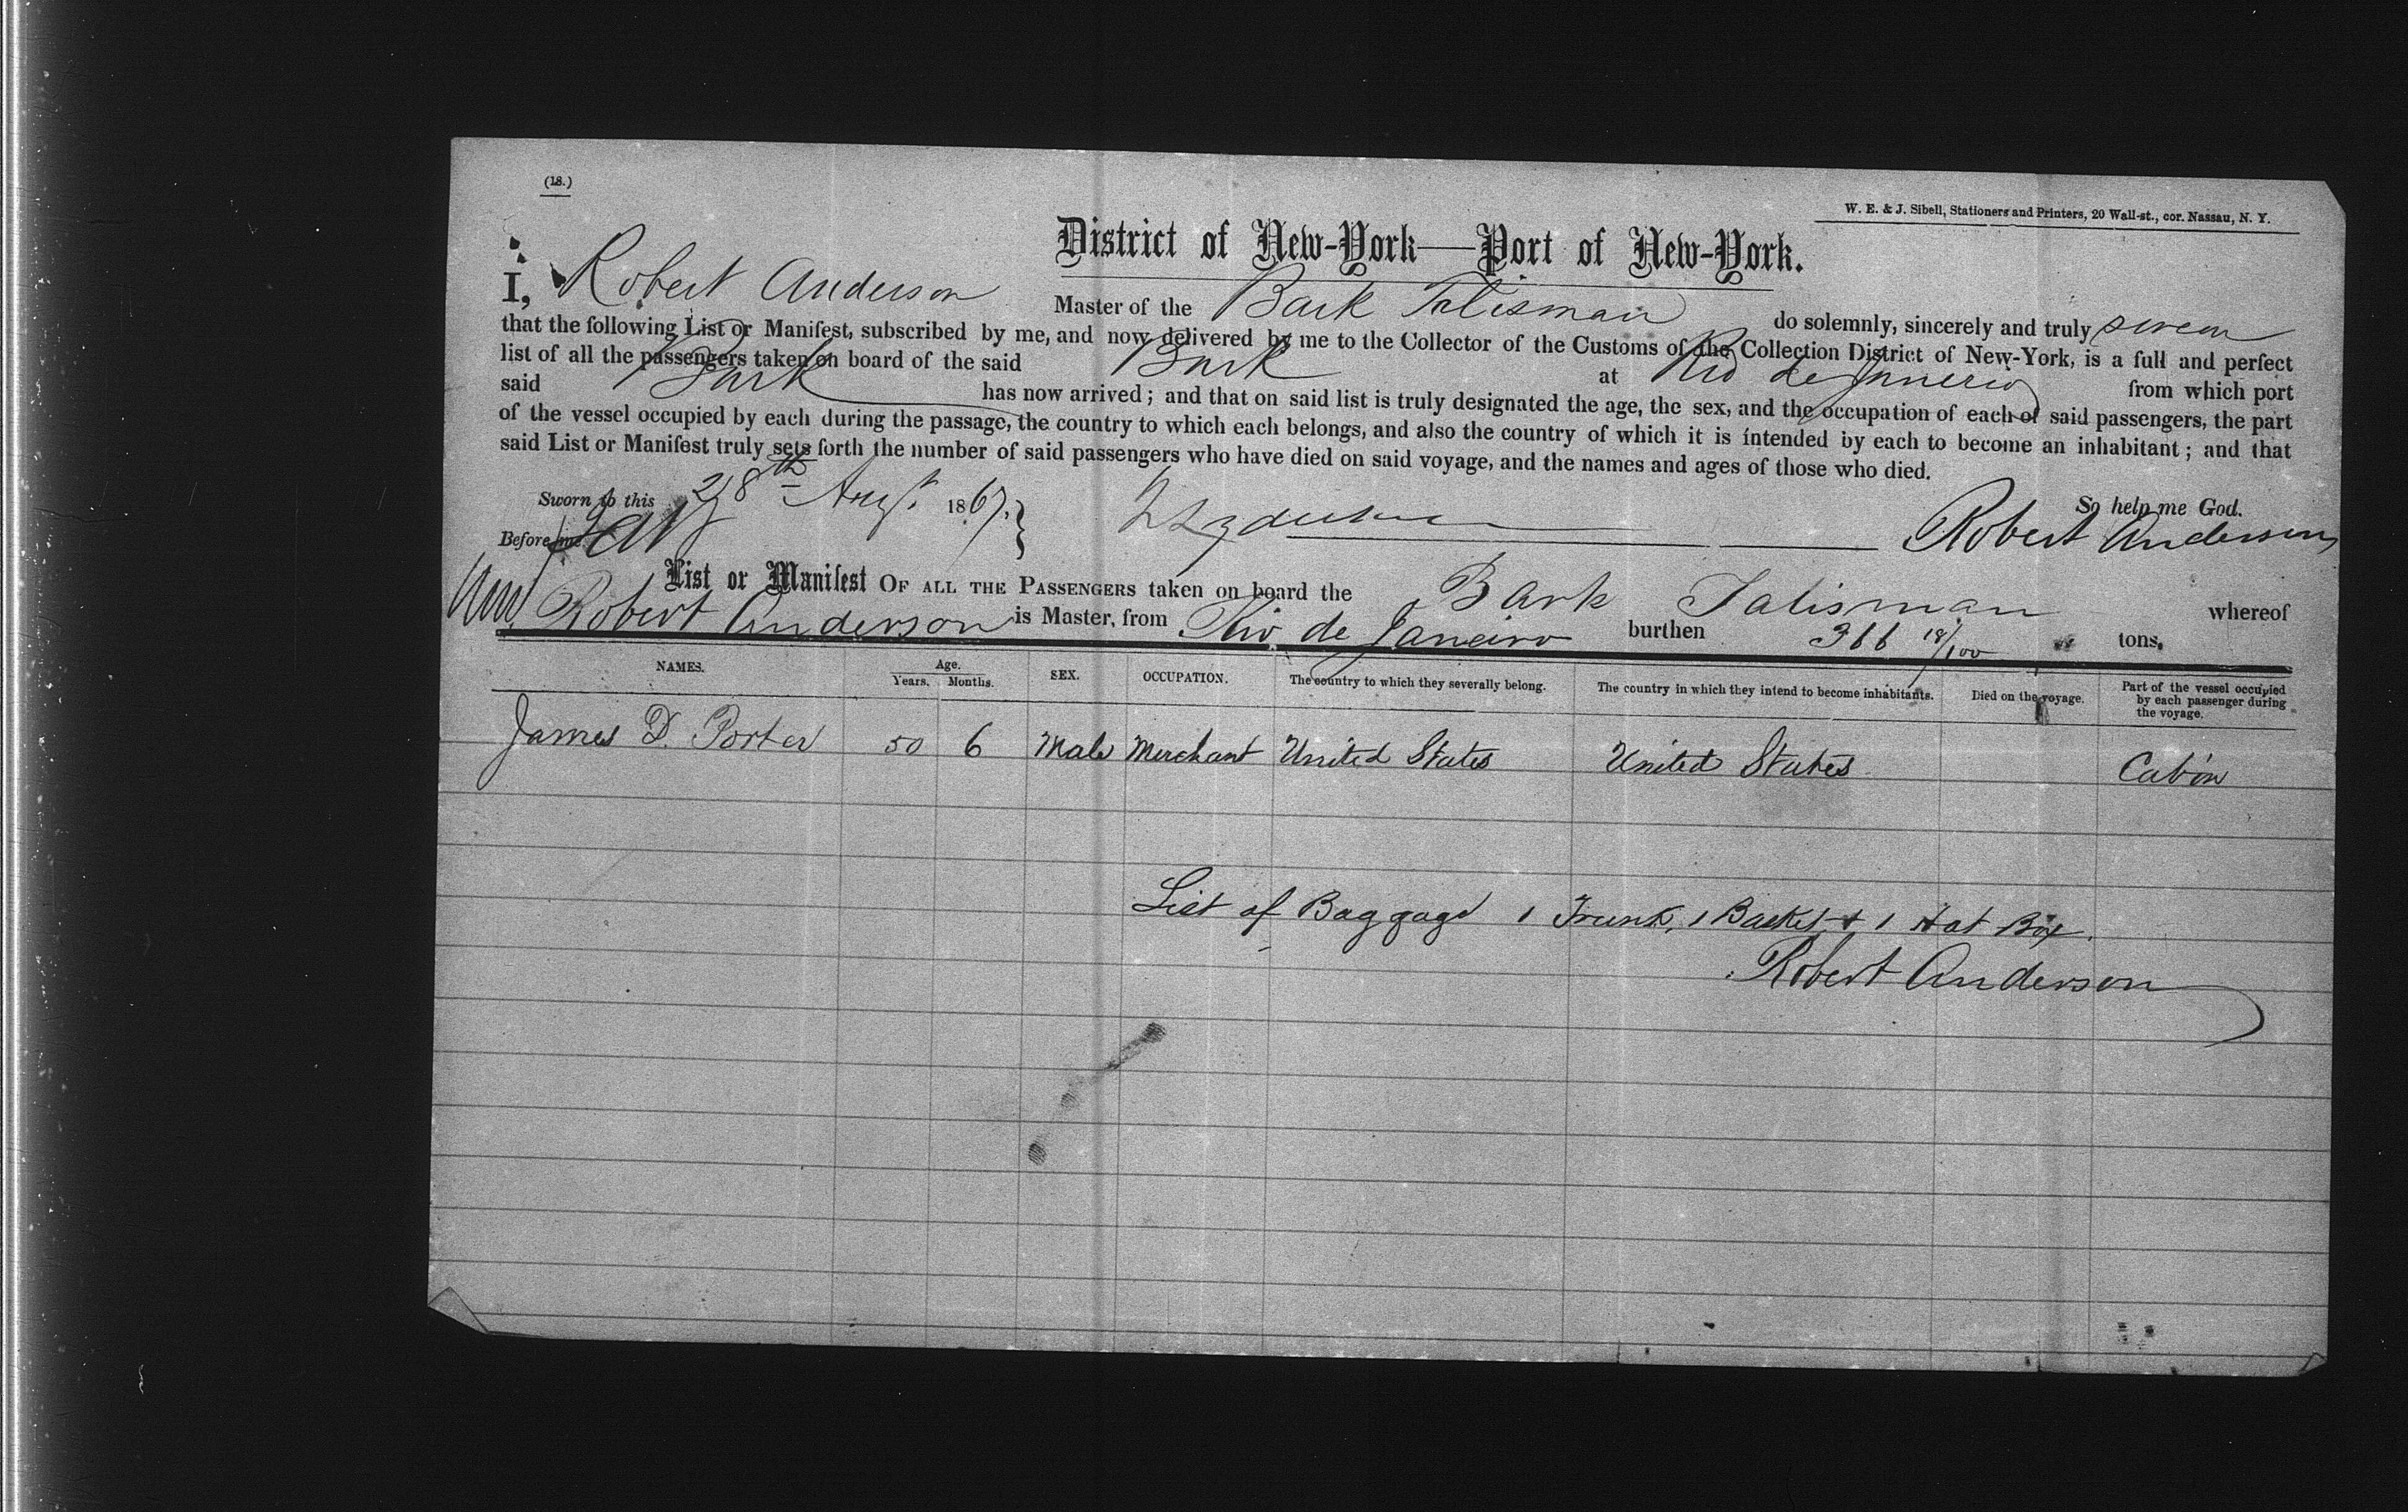 (18.)
W. E. & J. Sibell, Stationers and Printers, 20 Wall-st., cor. Nassau, N. Y.
District of New-York—Port of New-York.
I, Robert Anderson Master of the Bark Talisman do solemnly, sincerely and truly swear
that the following List or Manifest, subscribed by me, and now delivered by me to the Collector of the Customs of the Collection District of New-York, is a full and perfect
list of all the passengers taken on board of the said Bark at Rio de Janeiro from which port
said Bark has now arrived; and that on said list is truly designated the age, the sex, and the occupation of each of said passengers, the part
of the vessel occupied by each during the passage, the country to which each belongs, and also the country of which it is intended by each to become an inhabitant; and that
said List or Manifest truly sets forth the number of said passengers who have died on said voyage, and the names and ages of those who died.
Sworn to this 28th Augt 1867. So help me God.
Before me Robert Anderson
List or Manifest OF ALL THE PASSENGERS taken on board the Bark Talisman whereof
Robert Anderson is Master, from Rio de Janeiro burthen 366 18/100 tons.
NAMES. Age. Years. Months. SEX. OCCUPATION. The country to which they severally belong. The country in which they intend to become inhabitants. Died on the voyage. Part of the vessel occupied by each passenger during the voyage.
James D. Porter 50 6 Male Merchant United States United States Cabin
List of Baggage 1 Trunk, 1 Basket & 1 Hat Box.
Robert Anderson